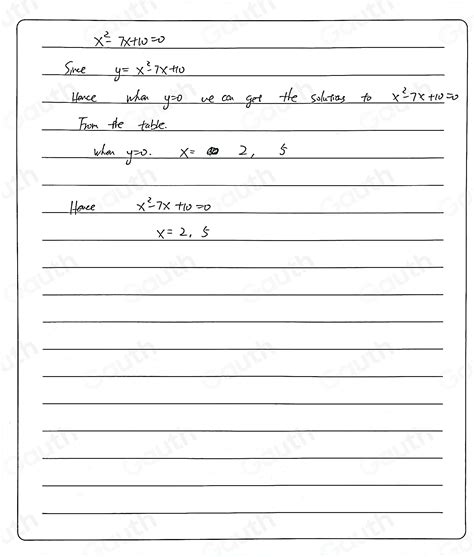 x²-7x+10=0
Since y=x²-7x+10
Hence when y=0 we can get the solutions to x²-7x+10=0
From the table.
when y=0. x= 2, 5
Hence x²-7x+10=0
x=2, 5